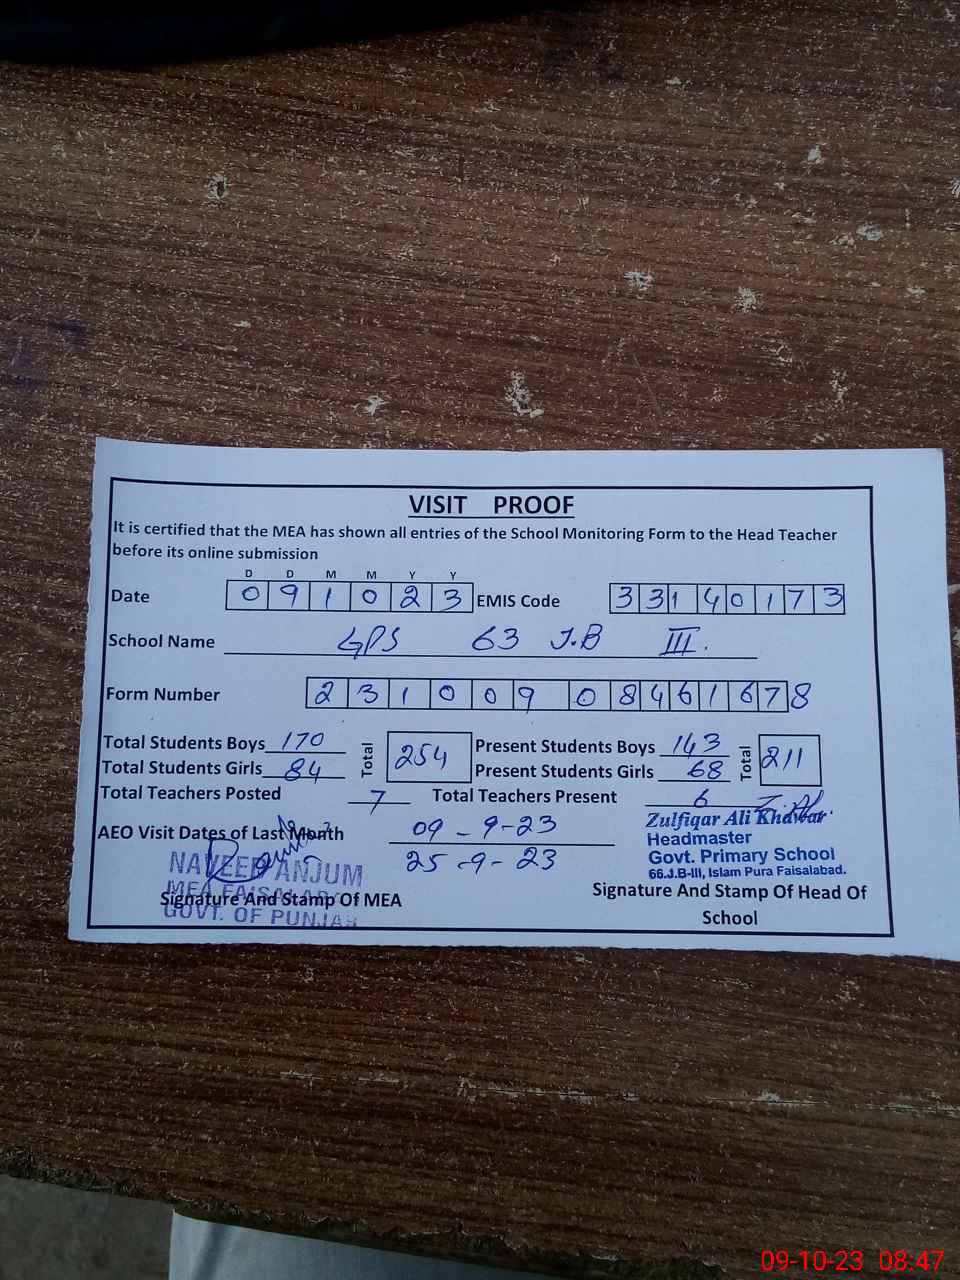 VISIT PROOF
It is certified that the MEA has shown all entries of the School Monitoring Form to the Head Teacher
before its online submission
D D M M Y Y
Date 0 9 1 0 2 3 EMIS Code 3 3 1 4 0 1 7 3
School Name GPS 63 J.B III.
Form Number 2 3 1 0 0 9 0 8 4 6 1 6 7 8
Total Students Boys 170 Total 254 Present Students Boys 143 Total 211
Total Students Girls 84 Present Students Girls 68
Total Teachers Posted 7 Total Teachers Present 6
AEO Visit Dates of Last Month 09-9-23
25-9-23
Zulfiqar Ali Khawar
Headmaster
Govt. Primary School
66.J.B-III, Islam Pura Faisalabad.
NAVEED ANJUM
MEA FAISALABAD
GOVT. OF PUNJAB
Signature And Stamp Of MEA
Signature And Stamp Of Head Of
School
09-10-23 08:47